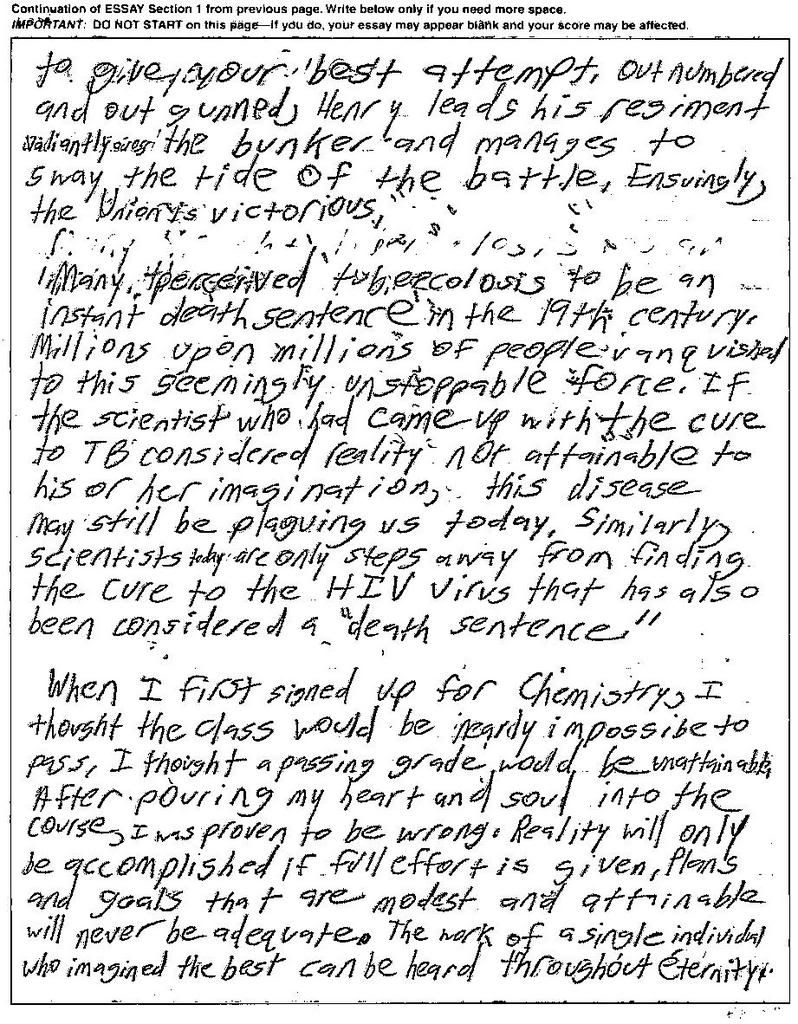 Continuation of ESSAY Section 1 from previous page. Write below only if you need more space.
IMPORTANT: DO NOT START on this page—if you do, your essay may appear blank and your score may be affected.
to give your best attempt. Outnumbered
and out gunned, Henry leads his regiment
the bunker and manages to
sway the tide of the battle. Ensuingly,
the Union is victorious.
Many perceived tubercolosis to be an
instant death sentence in the 19th century.
Millions upon millions of people vanquished
to this seemingly unstoppable force. If
the scientist who had came up with the cure
to TB considered reality not attainable to
his or her imagination, this disease
may still be plaguing us today. Similarly,
scientists today are only steps away from finding
the cure to the HIV virus that has also
been considered a "death sentence."
When I first signed up for Chemistry, I
thought the class would be nearly impossibe to
pass, I thought a passing grade would be unattainable.
After pouring my heart and soul into the
course, I was proven to be wrong. Reality will only
be accomplished if full effort is given, Plans
and goals that are modest and attainable
will never be adequate. The work of a single individual
who imagined the best can be heard throughout eternity.